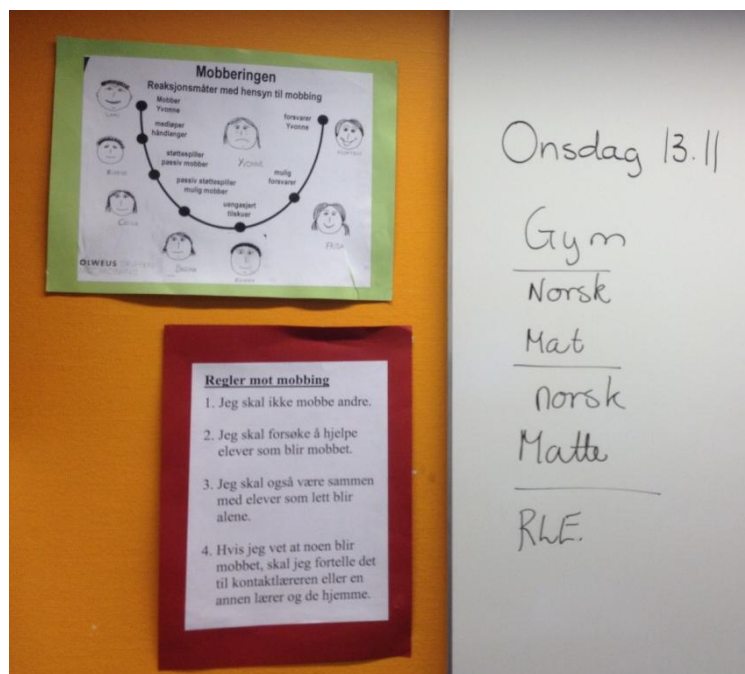 Mobberingen
Reaksjonsmåter med hensyn til mobbing
Mobber
Yvonne
medløper
håndlanger
støttespiller
passiv mobber
passiv støttespiller
mulig mobber
uengasjert
tilskuer
mulig
forsvarer
forsvarer
Yvonne
YVONNE
FRIDA
OLWEUS
Regler mot mobbing
1. Jeg skal ikke mobbe andre.
2. Jeg skal forsøke å hjelpe
elever som blir mobbet.
3. Jeg skal også være sammen
med elever som lett blir
alene.
4. Hvis jeg vet at noen blir
mobbet, skal jeg fortelle det
til kontaktlæreren eller en
annen lærer og de hjemme.
Onsdag 13.11
Gym
Norsk
Mat
norsk
Matte
RLE.